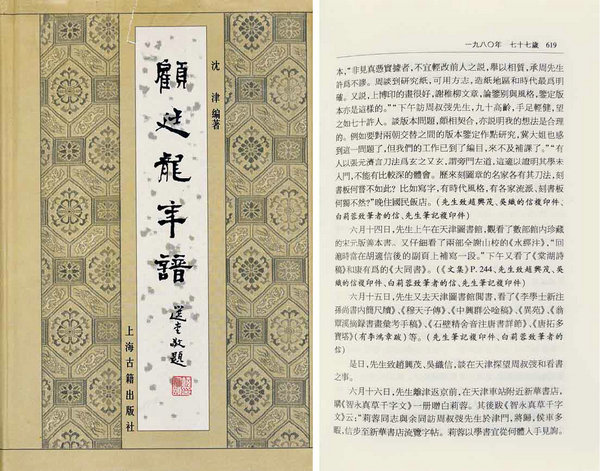 沈津 編著
顧廷龍年譜
選堂敬題
上海古籍出版社
一九八〇年 七十七歲 619
本,“非見真憑實據者,不宜輕改前人之説,舉以相質,承周先生
許爲不謬。周談到研究紙,可用方志,造紙地區和時代最爲明
確。又説,上博印的畫很好,謝稚柳文章,論鑒别與風格,鑒定版
本亦是這樣的。”“下午訪周叔弢先生,九十高齡,手足輕健,望
之如七十許人。談版本問題,頗相契合,亦説明我的想法是合理
的。例如要對兩朝交替之間的版本鑒定作點研究,冀大姐也感
到這一問題了,但我們的工作已到了編目,來不及補課了。”“有
人以張元濟言刀法爲玄之又玄,謂旁門左道,這適以證明其學未
入門,不能有比較深的體會。歷來刻圖章的名家各有其刀法,刻
書板何嘗不如此?比如寫字,有時代風格,有各家流派、刻書板
何獨不然?”晚住國民飯店。(先生致趙興茂、吳織的信複印件、
白莉蓉致筆者的信、先生筆記複印件)
六月十四日,先生上午在天津圖書館,觀看了數部館内珍藏
的宋元版善本書。又仔細看了兩部全謝山校的《水經注》,“回
滬時當在胡適信後的副頁上補寫一段。”下午又看了《棠湖詩
稿》和康有爲的《大同書》。(《文集》P.244、先生致趙興茂、吳
織的信複印件、白莉蓉致筆者的信、先生筆記複印件)
六月十五日,先生又去天津圖書館閲書,看了《李學士新注
孫尚書内簡尺牘》、《穆天子傳》、《中興群公唫稿》、《異苑》、《翁
覃溪摘録書畫彙考手稿》、《石壁精舍音注唐書詳節》、《唐拓多
寶塔》(有李鴻章跋)等。(先生筆記複印件、白莉蓉致筆者的
信)
是日,先生致趙興茂、吳織信,談在天津探望周叔弢和看書
之事。
六月十六日,先生離津返京前,在天津車站附近新華書店,
購《智永真草千字文》一册贈白莉蓉。其後跋《智永真草千字
文》云:“莉蓉同志與余同訪周叔弢先生於津門,將歸,候車多
暇,信步至新華書店流覽字帖。莉蓉以學書宜從何體入手見詢。